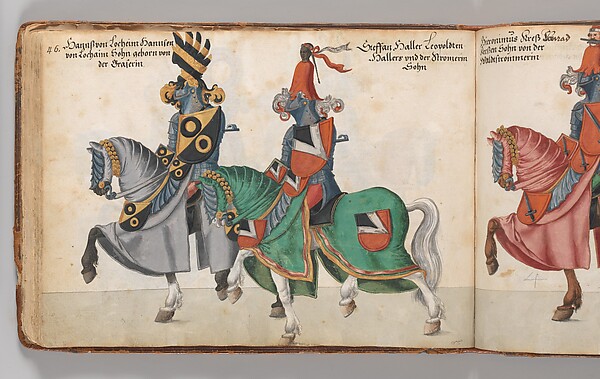 46. Hannß von Locheim Hannsen
von Lochaim Sohn geborn von
der Graserin
Steffan Haller Leopoldten
Hallers vnd der Stromerin
Sohn
Hieronimüs Kreß Conrad
Kressen Sohn von der
Waldstromerin